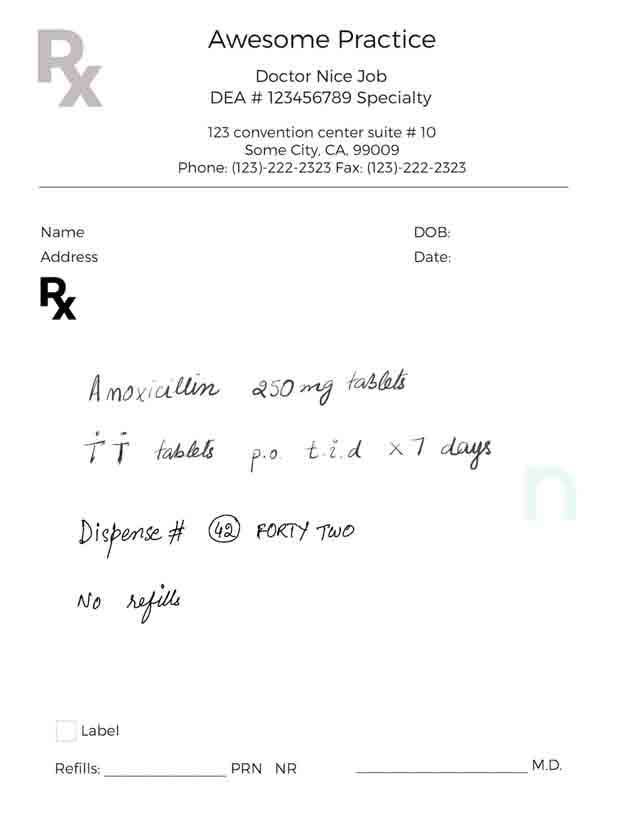 Rx
Awesome Practice
Doctor Nice Job
DEA # 123456789 Specialty
123 convention center suite # 10
Some City, CA, 99009
Phone: (123)-222-2323 Fax: (123)-222-2323
Name DOB:
Address Date:
Rx
Amoxicillin 250 mg tablets
TT tablets p.o. t.i.d x 7 days
Dispense # 42 FORTY TWO
No refills
n
Label
Refills: PRN NR M.D.